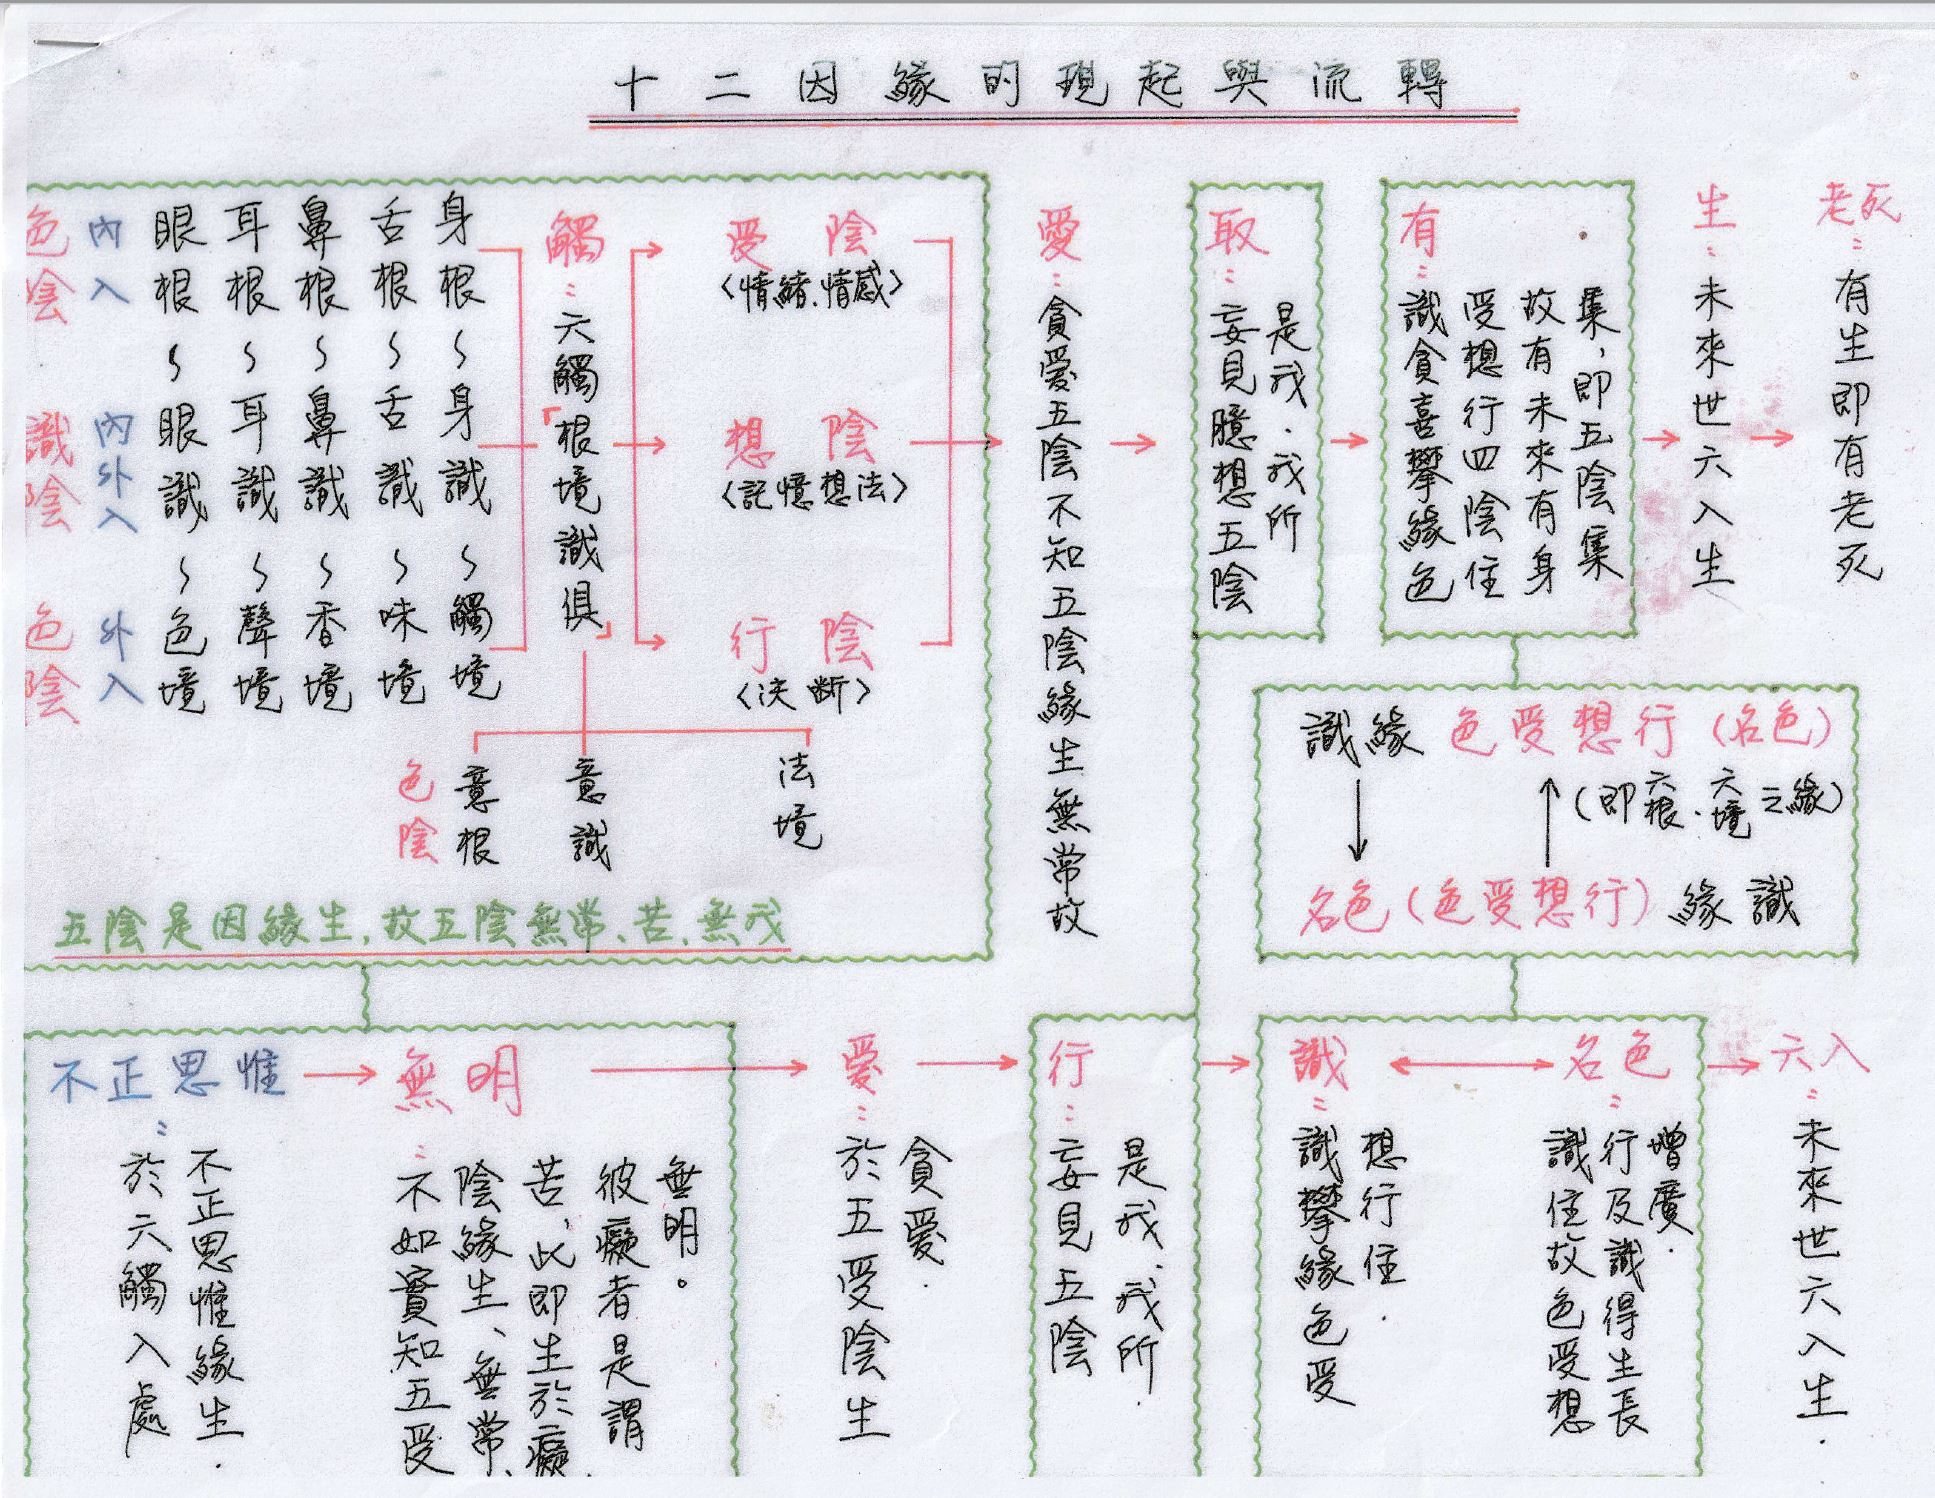 十二因緣的現起與流轉
色陰
內入
眼根~眼識~色境
耳根~耳識~聲境
鼻根~鼻識~香境
舌根~舌識~味境
身根~身識~觸境
識陰
內外入
色陰
外入
觸:六觸「根境識俱」
受陰
〈情緒、情感〉
想陰
〈記憶想法〉
行陰
〈決斷〉
色陰
意根
意識
法境
五陰是因緣生,故五陰無常、苦、無我
愛:貪愛五陰不知五陰緣生無常故
取:妄見臆想五陰
是我、我所
有:識貪喜攀緣色
受想行四陰住
故有未來有身
集,即五陰集
生:未來世六入生
老死:有生即有老死
識緣 色受想行(名色)
(即六根、六境之緣)
名色(色受想行)緣識
不正思惟:於六觸入處
不正思惟緣生.
無明:不如實知五受
陰緣生、無常、
苦、此即生於癡
彼癡者是謂
無明。
愛:於五受陰生
貪愛.
行:妄見五陰
是我、我所.
識:識攀緣色受
想行住.
名色:識住故色受想
行及識得生長
增廣.
六入:未來世六入生.